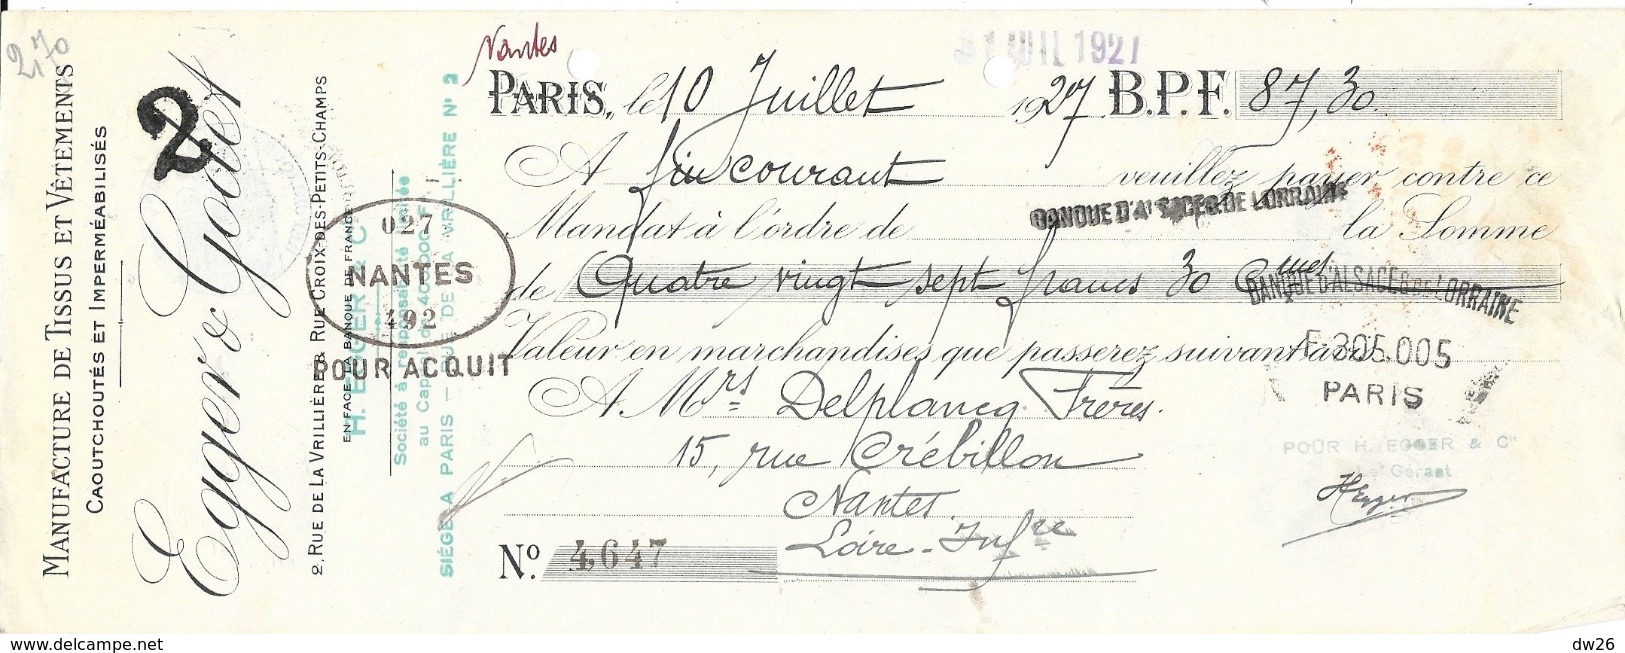 270
MANUFACTURE DE TISSUS ET VÊTEMENTS
CAOUTCHOUTÉS ET IMPERMÉABILISÉS
2
Egger & Godet
2, RUE DE LA VRILLIÈRE & RUE CROIX-DES-PETITS-CHAMPS
EN FACE LA BANQUE DE FRANCE
H. EGGER & Cie
Société à responsabilité limitée
au Capital de 400.000 F.
SIÈGE A PARIS — RUE DE LA VRILLIÈRE N° 2
027
NANTES
492
POUR ACQUIT
Nantes
31 JUIL 1927
PARIS, le 10 Juillet 1927 B.P.F. 87,30
A fin courant veuillez payer contre ce
Mandat à l'ordre de BANQUE D'ALSACE & DE LORRAINE la Somme
de Quatre vingt sept francs 30 Cmes
BANQUE D'ALSACE & DE LORRAINE
Valeur en marchandises que passerez suivant avis.
F 305.005
PARIS
A Mrs Delplancq Frères.
15, rue Crébillon
Nantes.
Loire-Infre
POUR H. EGGER & Cie
Le Gérant
HEgger
No. 4647
dw26